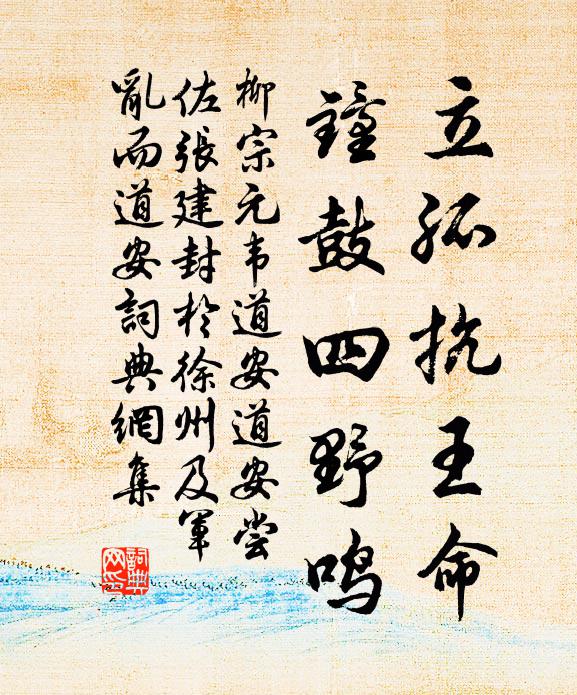 立孤抗王命
鐘鼓四野鸣
柳宗元韦道安道安尝
佐張建封於徐州及軍
亂而道安詞典網集